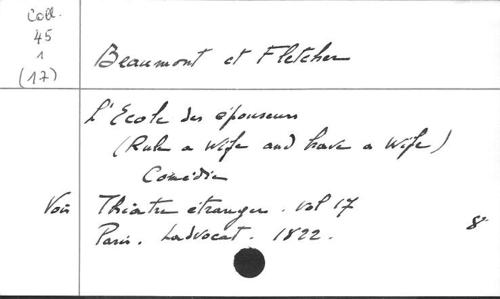 Coll.
45
1
(17)
Beaumont et Fletcher
L'Ecole des épouseurs
(Rule a Wife and have a Wife)
Comédie
Voir Théâtre étranger. vol 17
Paris. Ladvocat. 1822. 8°